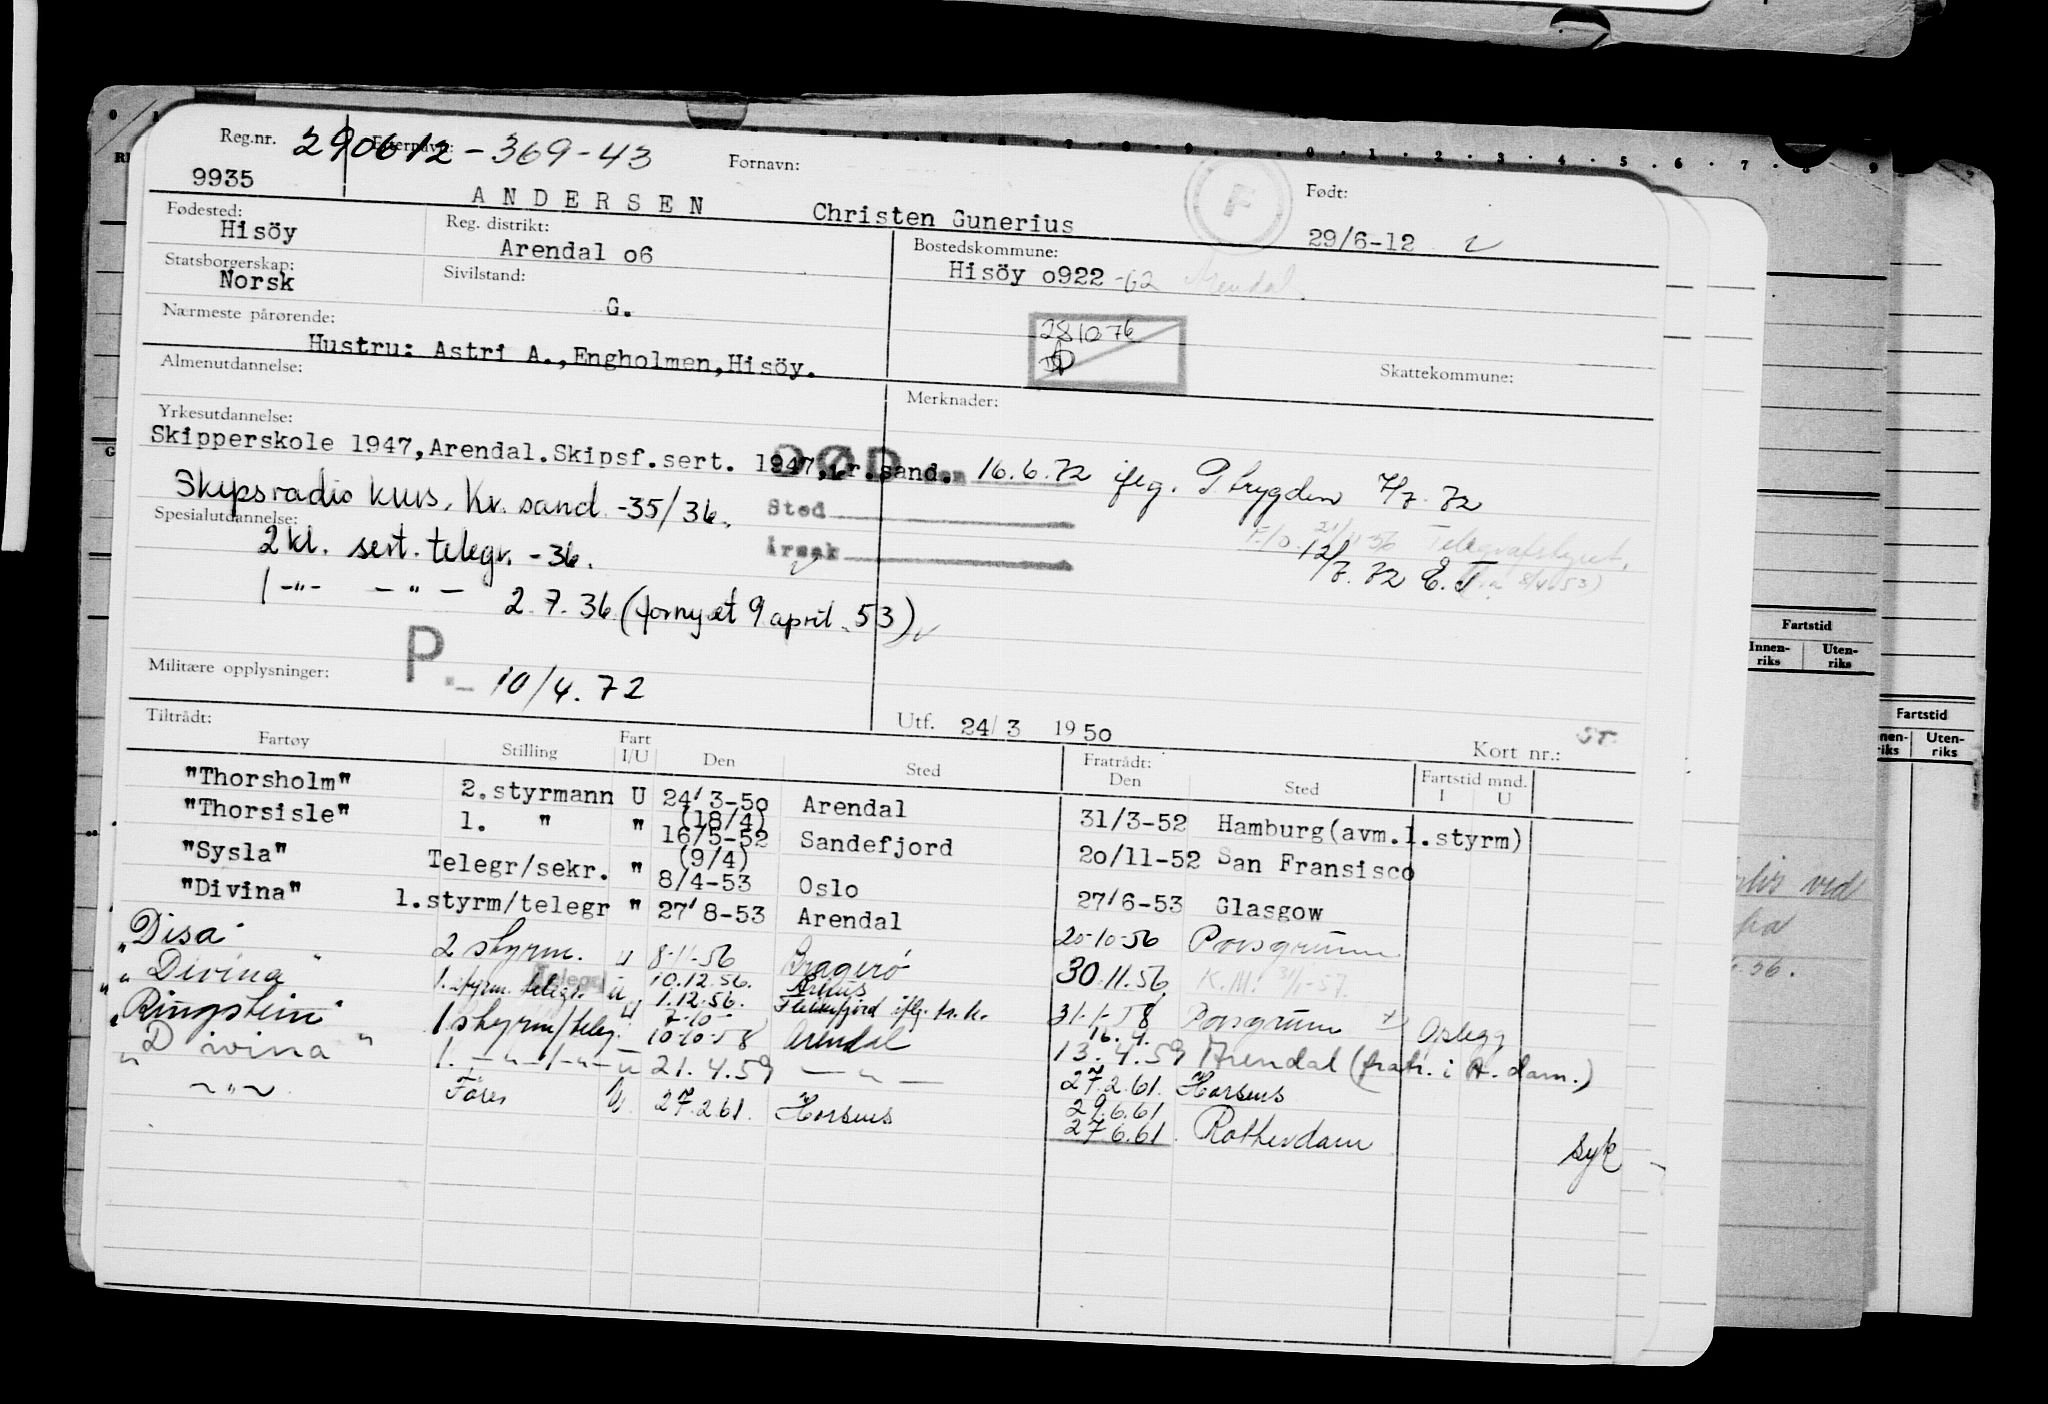 Reg.nr. 290612-369-43 Etternavn: Fornavn: Født:
9935 ANDERSEN Christen Gunerius F 29/6-12
Fødested: Hisöy Reg. distrikt: Arendal o6 Bostedskommune: Hisöy o922 -62 Arendal.
Statsborgerskap: Norsk Sivilstand: G.
Nærmeste pårørende: Hustru: Astri A.,Engholmen,Hisöy.
281076
Skattekommune:
Almenutdannelse: Merknader:
Yrkesutdannelse:
Skipperskole 1947,Arendal.Skipsf.sert. 1947,kr.sand.
DØD den 16.6.72 iflg. P trygden 7/7.72
Skipsradio kurs. Kr. sand -35/36.
Sted
Årsak
Spesialutdannelse:
2 kl. sert. telegr. -36.
Telegrafstyret,
12/7.72 E.T.
1 -"- -"- 2.7.36 (fornyet 9 april. 53)
Militære opplysninger: P. 10/4.72
Tiltrådt: Utf. 24/3 1950 Kort nr.:
Fartøy Stilling Fart I/U Den Sted Fratrådt: Den Sted Fartstid mnd. I U
"Thorsholm" 2.styrmann U 24/3-50 (18/4) Arendal 31/3-52 Hamburg(avm.1.styrm)
"Thorsisle" 1. " " 16/5-52 (9/4) Sandefjord 20/11-52 San Fransisco
"Sysla" Telegr/sekr. " 8/4-53 Oslo 27/6-53 Glasgow
"Divina" 1.styrm/telegr " 27/8-53 Arendal 20-10-56 Porsgrunn
"Disa" 2 styrm. u 8-11-56 Kragerø 30.11.56 K.M. 31/1-57.
"Divina" 1. styrm. telegr. u 10.12.56. 1.12.56. Århus Flekkefjord iflg. m.r. 31-1-58 Porsgrunn Opplegg
"Ringstein" 1 styrm/teleg. u 7-10- 10-10-58 Arendal 16.4. 13.4.59 Arendal (fratr. i A.dam.)
"Divina" 1. -"- 1-"- u 21.4.59 -"- 27.2.61. Horsens
-"- Fører U 27.2.61. Horsens 29.6.61 27.6.61. Rotterdam Syk
Fartstid
Innen-riks Uten-riks
Fartstid
Uten-riks